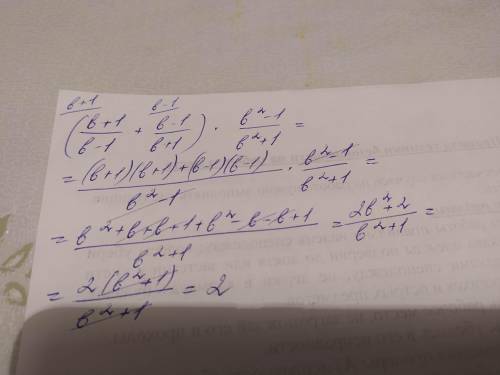 b+1 b-1
(b+1/b-1 + b-1/b+1) · b²-1/b²+1 =
= (b+1)(b+1)+(b-1)(b-1)/b²-1 · b²-1/b²+1 =
= b²+b+b+1+b²-b-b+1/b²+1 = 2b²+2/b²+1 =
= 2(b²+1)/b²+1 = 2